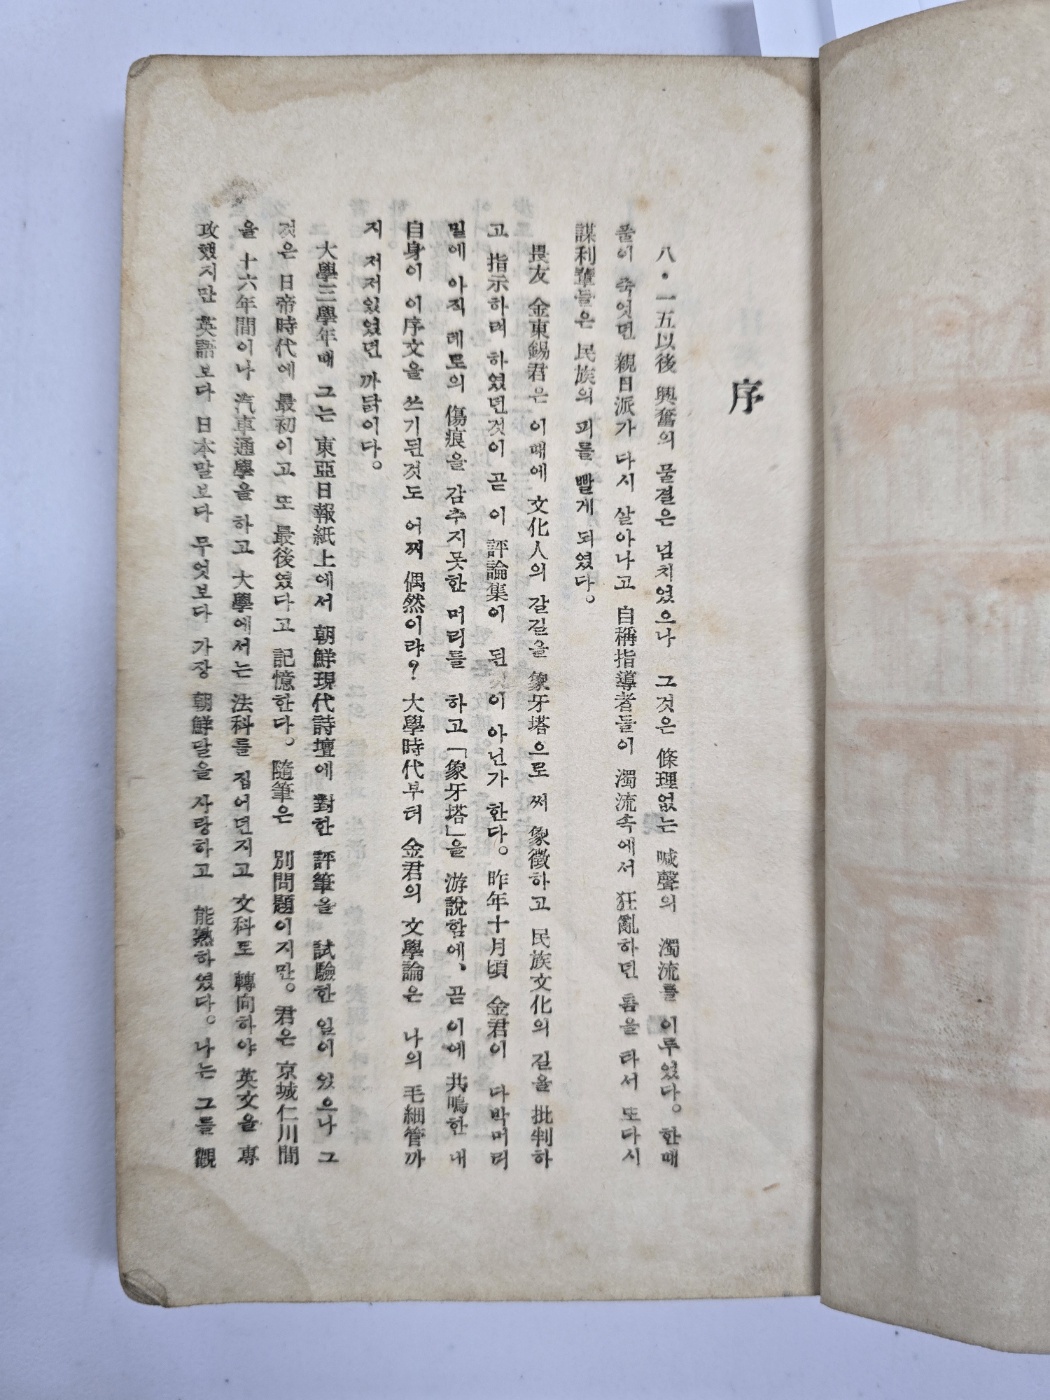 序
八·一五以後 興奮의 물결은 넘치였으나 그것은 條理없는 喊聲의 濁流를 이루었다。한때
풀이 죽엇던 親日派가 다시 살아나고 自稱指導者들이 濁流속에서 狂亂하던 틈을 타서 또다시
謀利輩들은 民族의 피를 빨게 되였다。
畏友 金東錫君은 이때에 文化人의 갈길을 象牙塔으로 써 象徵하고 民族文化의 길을 批判하
고 指示하려 하였던것이 곧 이 評論集이 된것이 아닌가 한다。昨年十月頃 金君이 다박머리
밑에 아직 레토의 傷痕을 감추지못한 머리를 하고「象牙塔」을 游說함에、곧 이에 共鳴한 내
自身이 이序文을 쓰기된것도 어찌 偶然이랴? 大學時代부터 金君의 文學論은 나의 毛細管까
지 저저있었던 까닭이다。
大學三學年때 그는 東亞日報紙上에서 朝鮮現代詩壇에 對한 評筆을 試驗한 일이 있으나 그
것은 日帝時代에 最初이고 또 最後였다고 記憶한다。隨筆은 別問題이지만。君은 京城仁川間
을 十六年間이나 汽車通學을 하고 大學에서는 法科를 집어던지고 文科로 轉向하야 英文을 專
攻했지만 英語보다 日本말보다 무엇보다 가장 朝鮮말을 사랑하고 能熟하였다。나는 그를 觀